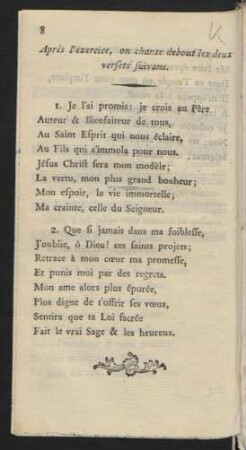 8
Après l'exercice, on chante debout les deux
versets suivans.
1. Je l'ai promis: je crois au Père
Auteur & Bienfaiteur de tous,
Au Saint Esprit qui nous éclaire,
Au Fils qui s'immola pour nous.
Jésus Christ sera mon modèle;
La vertu, mon plus grand bonheur;
Mon espoir, la vie immortelle;
Ma crainte, celle du Seigneur.
2. Que si jamais dans ma foiblesse,
J'oublie, ô Dieu! ces saints projets;
Retrace à mon cœur ma promesse,
Et punis moi par des regrets.
Mon ame alors plus épurée,
Plus digne de t'offrir ses vœux,
Sentira que ta Loi sacrée
Fait le vrai Sage & les heureux.